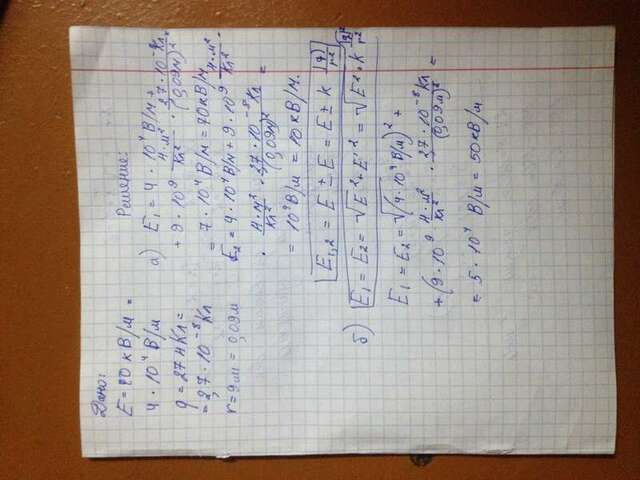 Дано:
E = 20 кВ/м =
4 · 10⁴ В/м
q = 27 нКл =
= 2,7 · 10⁻⁸ Кл
r = 9см = 0,09м
Решение:
а) E₁ = 4 · 10⁴ В/м +
+ 9 · 10⁹ Н·м²/Кл² · 2,7·10⁻⁸ Кл/(0,09м)² =
= 7 · 10⁴ В/м = 70кВ/м
E₂ = 4·10⁴ В/м + 9·10⁹ Н·м²/Кл² ·
· Н·м²/Кл² · 2,7·10⁻⁸ Кл/(0,09м)² =
= 10⁴ В/м = 10 кВ/м.
E₁,₂ = E ± E = E ± k |q|/r²
б) E₁ = E₂ = √E² + E'² = √E² + k |q|²/r²
E₁ = E₂ = √(4·10⁴ В/м)² +
+ (9·10⁹ Н·м²/Кл² · 2,7·10⁻⁸ Кл/(0,09м)² =
= 5 · 10⁴ В/м = 50кВ/м